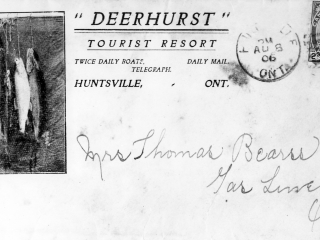 " DEERHURST "
TOURIST RESORT
TWICE DAILY BOATS. DAILY MAIL.
TELEGRAPH.
HUNTSVILLE, - ONT.
AU 8
06
ONT
Mrs Thomas Bearss
Gas Line